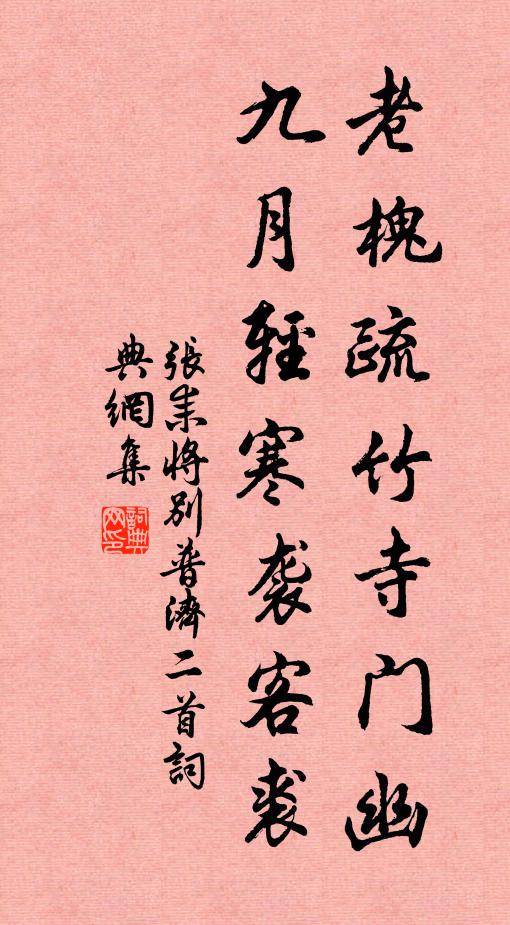 老槐疏竹寺门幽
九月轻寒袭客裘
張耒將別普濟二首詞
典網集
詞典網印